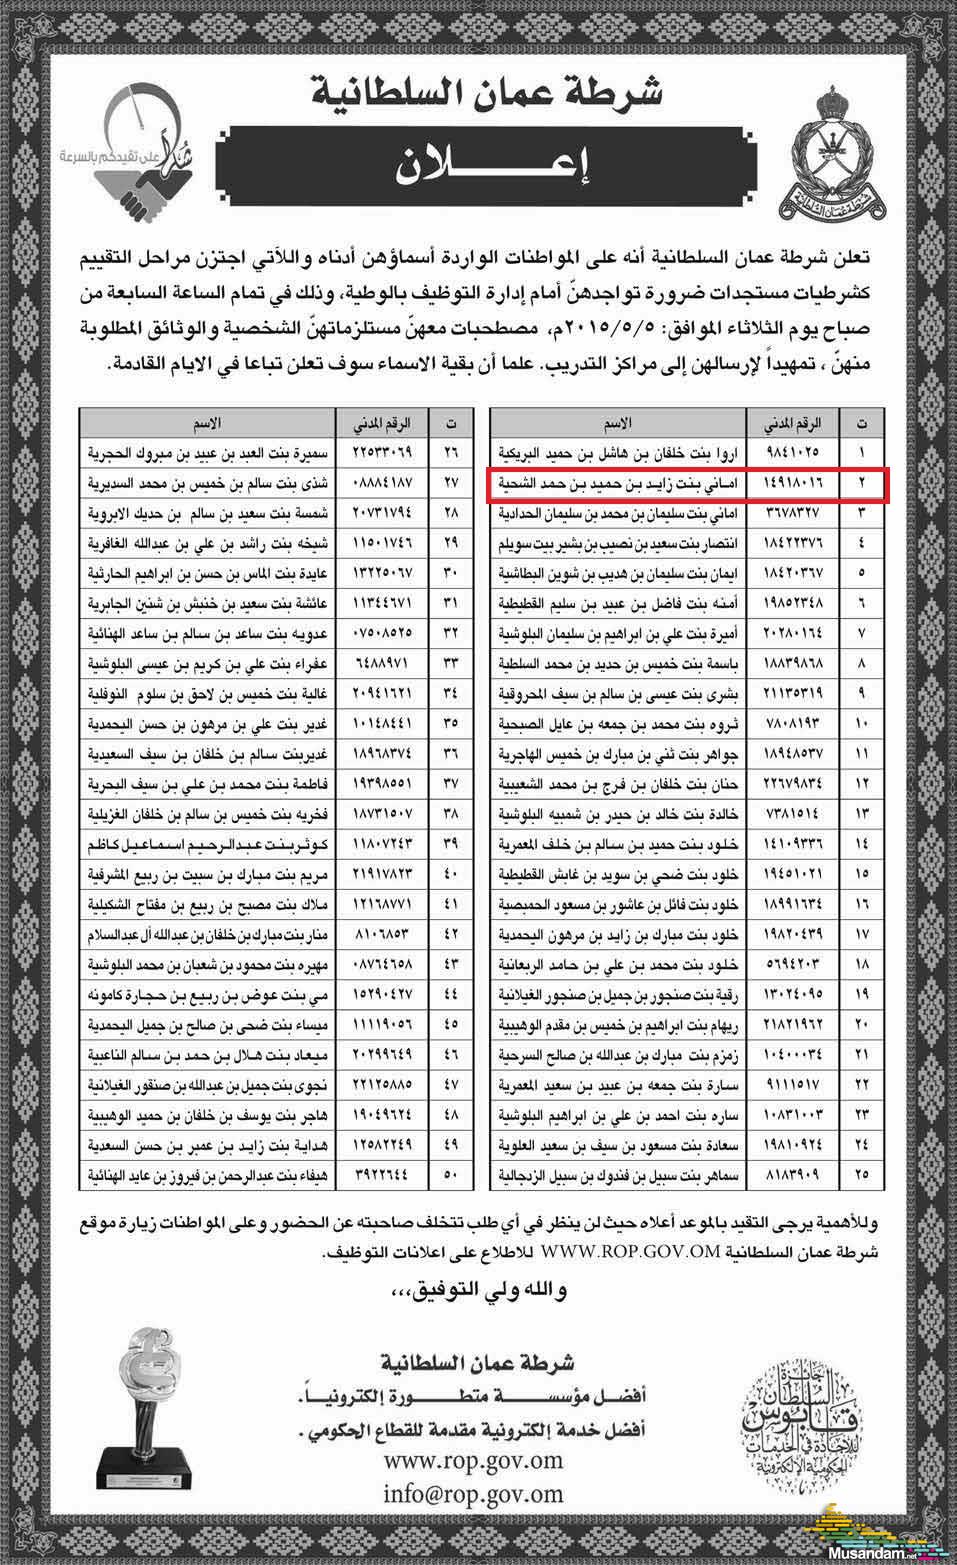 شرطة عمان السلطانية
إعـــــلان
شكراً على تقيدكم بالسرعة
شرطة عمان السلطانية
تعلن شرطة عمان السلطانية أنه على المواطنات الواردة أسماؤهن أدناه واللآتي اجتزن مراحل التقييم
كشرطيات مستجدات ضرورة تواجدهنّ أمام إدارة التوظيف بالوطية، وذلك في تمام الساعة السابعة من
صباح يوم الثلاثاء الموافق: ٢٠١٥/٥/٥م، مصطحبات معهنّ مستلزماتهنّ الشخصية والوثائق المطلوبة
منهنّ ، تمهيداً لإرسالهن إلى مراكز التدريب. علما أن بقية الاسماء سوف تعلن تباعا في الايام القادمة.
ت الرقم المدني الاسم
١ ٩٨٤١٠٢٥ اروا بنت خلفان بن هاشل بن حميد البريكية
٢ ١٤٩١٨٠١٦ اماني بنت زايد بن حميد بن حمد الشحية
٣ ٣٦٧٨٣٢٧ اماني بنت سليمان بن محمد بن سليمان الحدادية
٤ ١٨٤٢٢٣٧٦ انتصار بنت سعيد بن نصيب بن بشير بيت سويلم
٥ ١٨٤٢٠٣٦٧ ايمان بنت سليمان بن هديب بن شوين البطاشية
٦ ١٩٨٥٢٣٤٨ أمنه بنت فاضل بن عبيد بن سليم القطيطية
٧ ٢٠٢٨٠١٦٤ أميرة بنت علي بن ابراهيم بن سليمان البلوشية
٨ ١٨٨٣٩٨٦٨ باسمة بنت خميس بن حديد بن محمد السلطية
٩ ٢١١٣٥٣١٩ بشرى بنت عيسى بن سالم بن سيف المحروقية
١٠ ٧٨٠٨١٩٣ ثروه بنت محمد بن جمعه بن عايل الصبحية
١١ ١٨٩٤٨٥٣٧ جواهر بنت ثني بن مبارك بن خميس الهاجرية
١٢ ٢٢٦٧٩٨٣٤ حنان بنت خلفان بن فرج بن محمد الشعيبية
١٣ ٧٣٨١٥١٤ خالدة بنت خالد بن حيدر بن شمبيه البلوشية
١٤ ١٤١٠٩٣٣٦ خلود بنت حميد بن سالم بن خلف المعمرية
١٥ ١٩٤٥١٠٢١ خلود بنت ضحي بن سويد بن غابش القطيطية
١٦ ١٨٩٩١٦٣٤ خلود بنت فائل بن عاشور بن مسعود الحمبصية
١٧ ١٩٨٢٠٤٣٩ خلود بنت مبارك بن زايد بن مرهون اليحمدية
١٨ ٥٦٩٤٢٠٣ خلود بنت محمد بن علي بن حامد الربعانية
١٩ ١٣٠٢٤٠٩٥ رقية بنت صنجور بن جميل بن صنجور الغيلانية
٢٠ ٢١٨٢١٩٦٢ ريهام بنت ابراهيم بن خميس بن مقدم الوهيبية
٢١ ١٠٤٠٠٠٣٤ زمزم بنت مبارك بن عبدالله بن صالح السرحية
٢٢ ٩١١١٥١٧ سارة بنت جمعه بن عبيد بن سعيد المعمرية
٢٣ ١٠٨٣١٠٠٣ ساره بنت احمد بن علي بن ابراهيم البلوشية
٢٤ ١٩٨١٠٩٢٤ سعادة بنت مسعود بن سيف بن سعيد العلوية
٢٥ ٨١٨٣٩٠٩ سماهر بنت سبيل بن فندوك بن سبيل الزدجالية
ت الرقم المدني الاسم
٢٦ ٢٢٥٣٣٠٦٩ سميرة بنت العبد بن عبيد بن مبروك الحجرية
٢٧ ٠٨٨٨٤١٨٧ شذى بنت سالم بن خميس بن محمد السديرية
٢٨ ٢٠٧٣١٧٩٤ شمسة بنت سعيد بن سالم بن حديك الابروية
٢٩ ١١٥٠١٧٤٦ شيخه بنت راشد بن علي بن عبدالله الغافرية
٣٠ ١٣٢٢٥٠٦٧ عايدة بنت الماس بن حسن بن ابراهيم الحارثية
٣١ ١١٣٤٤٦٧١ عائشة بنت سعيد بن خنبش بن شنين الجابرية
٣٢ ٠٧٥٠٨٥٢٥ عدويه بنت ساعد بن سالم بن ساعد الهنائية
٣٣ ٦٤٨٨٩٧١ عفراء بنت علي بن كريم بن عيسى البلوشية
٣٤ ٢٠٩٤١٦٢١ غالية بنت خميس بن لاحق بن سلوم النوفلية
٣٥ ١٠١٤٨٤٤١ غدير بنت علي بن مرهون بن حسن اليحمدية
٣٦ ١٨٩٦٨٣٧٤ غديربنت سالم بن خلفان بن سيف السعيدية
٣٧ ١٩٣٩٨٥٥١ فاطمة بنت محمد بن علي بن سيف البحرية
٣٨ ١٨٧٣١٥٠٧ فخريه بنت خميس بن سالم بن خلفان الغزيلية
٣٩ ١١٨٠٧٢٤٣ كوثربنت عبدالرحيم اسماعيل كاظم
٤٠ ٢١٩١٧٨٢٣ مريم بنت مبارك بن سبيت بن ربيع المشرفية
٤١ ١٢١٦٨٧٧١ ملاك بنت مصبح بن ربيع بن مفتاح الشكيلية
٤٢ ٨١٠٦٨٥٣ منار بنت مبارك بن خلفان بن عبدالله أل عبدالسلام
٤٣ ٠٨٧٦٤٦٥٨ مهيره بنت محمود بن شعبان بن محمد البلوشية
٤٤ ١٥٢٩٠٤٢٧ مي بنت عوض بن ربيع بن حجارة كامونه
٤٥ ١١١١٩٠٥٦ ميساء بنت ضحى بن صالح بن جميل اليحمدية
٤٦ ٢٠٢٩٩٦٤٩ ميعاد بنت هلال بن حمد بن سالم الناعبية
٤٧ ٢٢١٢٥٨٨٥ نجوى بنت جميل بن عبدالله بن صنقور الغيلانية
٤٨ ١٩٠٤٩٦٢٤ هاجر بنت يوسف بن خلفان بن حميد الوهيبية
٤٩ ١٢٥٨٢٢٤٩ هداية بنت زايد بن عمبر بن حسن السعدية
٥٠ ٣٩٢٢٦٤٤ هيفاء بنت عبدالرحمن بن فيروز بن عايد الهنائية
وللأهمية يرجى التقيد بالموعد أعلاه حيث لن ينظر في أي طلب تتخلف صاحبته عن الحضور وعلى المواطنات زيارة موقع
شرطة عمان السلطانية WWW.ROP.GOV.OM للاطلاع على اعلانات التوظيف.
والله ولي التوفيق،،،
شرطة عمان السلطانية
أفضل مؤسســـة متطـــورة إلكترونيـــاً.
أفضل خدمة إلكترونية مقدمة للقطاع الحكومي .
www.rop.gov.om
info@rop.gov.om
جائزة
السلطان
قابوس
للإجادة في الخدمات
الحكومية الإلكترونية
Musandam.net